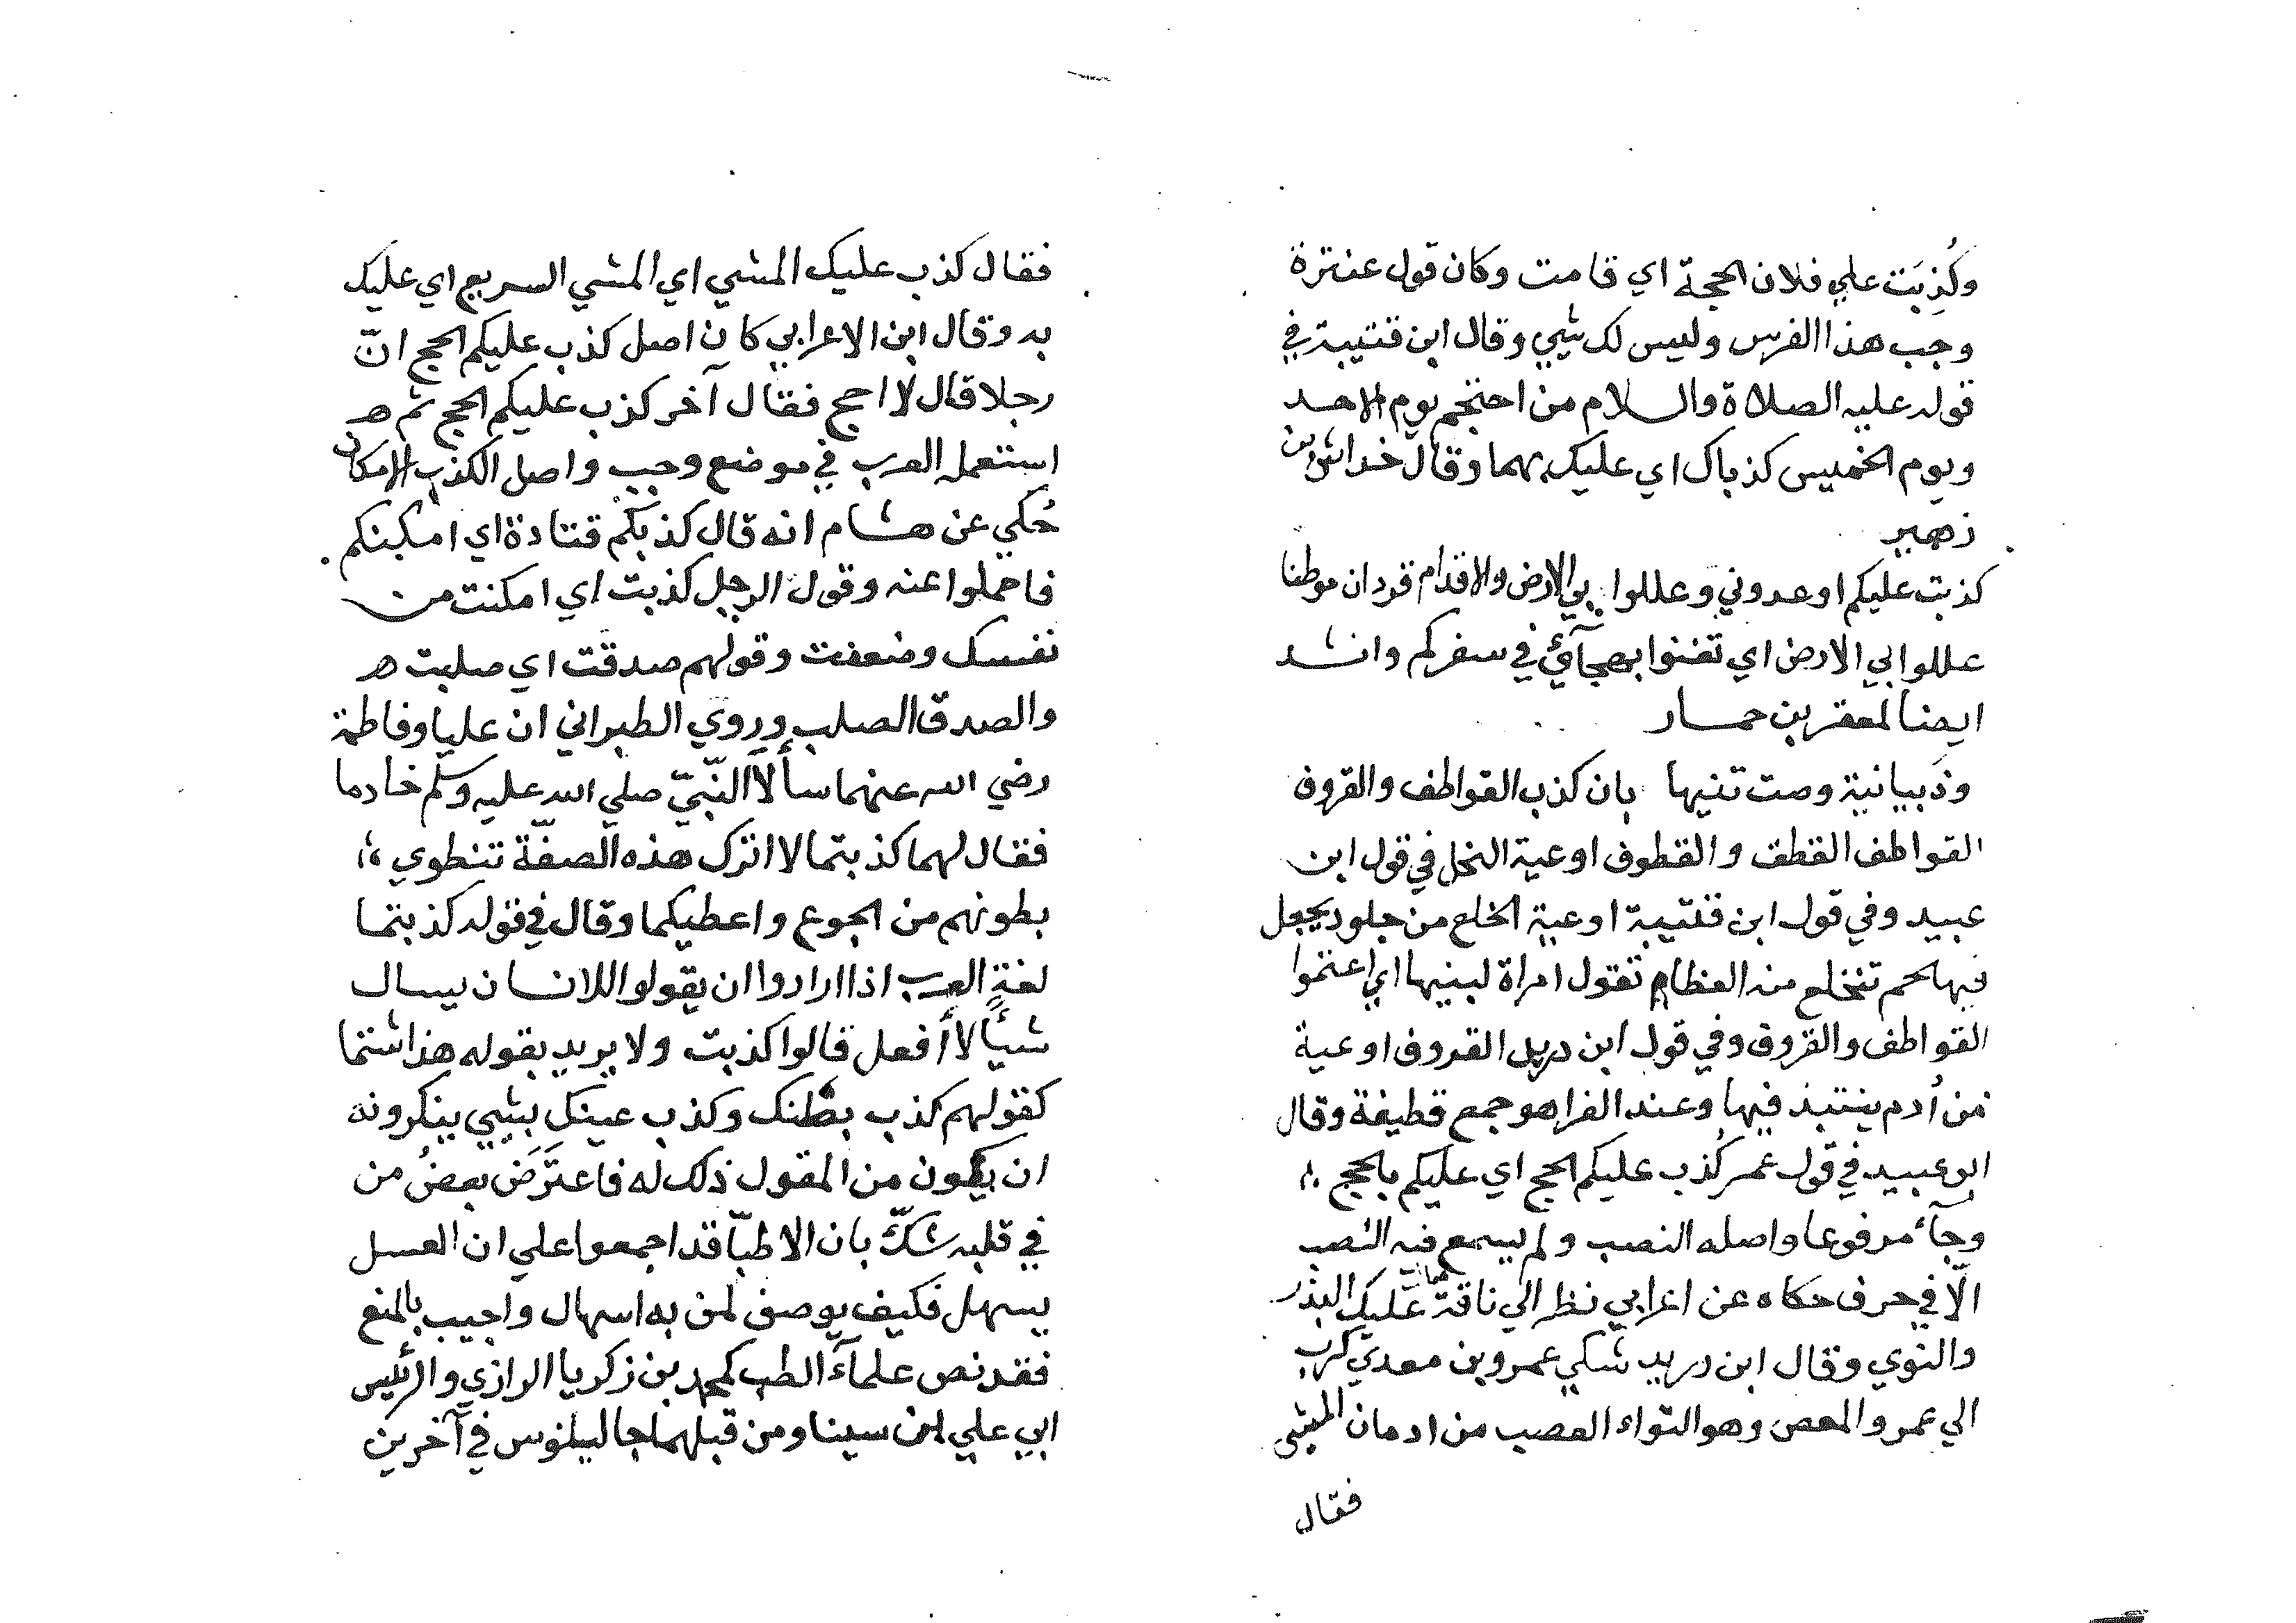 وكُذِبَت علي فلان الحجة اي قامت وكان قول عنترة
وجب هذا الفرس وليس لك شيي وقال ابن قتيبة في
قوله عليه الصلاة والسلام من احتجم يوم الاحد
ويوم الخميس كذباك اي عليك بهما وقال خداش بن
زهير
كذبت عليكم اوعدوني وعللوا بي الارض والاقدام قردان موطنا
عللوا بي الارض اي تغنوا بهجآئي في سفركم وانشد
ايضا لمعقر بن حمار
وذبيانية وصت تنيها بان كذب القواطف والقروف
القواطف القطف والقطوف اوعية النخل في قول ابن
عبيد وفي قول ابن قتيبة اوعية الخلع من جلود يجعل
فيها لحم تنخلع منه العظام تقول امراة لبنيها اي اعتموا
القواطف والقروف وفي قول ابن دريد القروف اوعية
من اُدم ينتبذ فيها وعند الفرا هو جمع قطيفة وقال
ابو عبيد في قول عمر كُذب عليكم الحج اي عليكم بالحج
وجآء مرفوعا واصله النصب ولم يسمع فيه النصب
الّا في حرف حكاه عن اعرابي نظر الي ناقة عليك البذر
والنوي وقال ابن دريد شكي عمرو بن معدي كرب
الي عمر والمعص وهو التواء العصب من ادمان المشي
فقال
فقال كذب عليك المشي اي المشي السريع اي عليك
به وقال ابن الاعرابي كان اصل كذب عليكم الحج انّ
رجلا قال لا احج فقال آخر كذب عليكم الحج ثم هـ
استعمله العرب في موضع وجب واصل الكذب الامكان
حُكي عن هشام انه قال كذبكم قتادة اي امكنكم
فاحملوا عنه وقول الرجل كذبت اي امكنت من
نفسك وضعفت وقولهم صدقت اي صلبت هـ
والصدق الصلب وروي الطبراني ان عليا وفاطمة
رضي الله عنهما سألا النّبيّ صلي الله عليه وسلّم خادما
فقال لهما كذبتما لا اترك هذه الصفّة تنطوي
بطونهم من الجوع واعطيكما وقال في قوله كذبتما
لغة العرب اذا ارادوا ان يقولوا للانسان يسال
شيئًا لا أفعل قالوا كذبت ولا يريد بقوله هذا شتما
كقولهم كذب بطنك وكذب عينك بشيي ينكرونه
ان يكون من المقول ذلك له فاعترَضَ بعضُ من
في قلبه شكّ بان الاطبّا قد اجمعوا علي ان العسل
يسهل فكيف يوصف لمن به اسهال واجيب بالمنع
فقد نص علمآء الطب كمحمد بن زكريا الرازي والرئيس
ابي علي ابن سينا ومن قبلهما جالينوس في آخرين